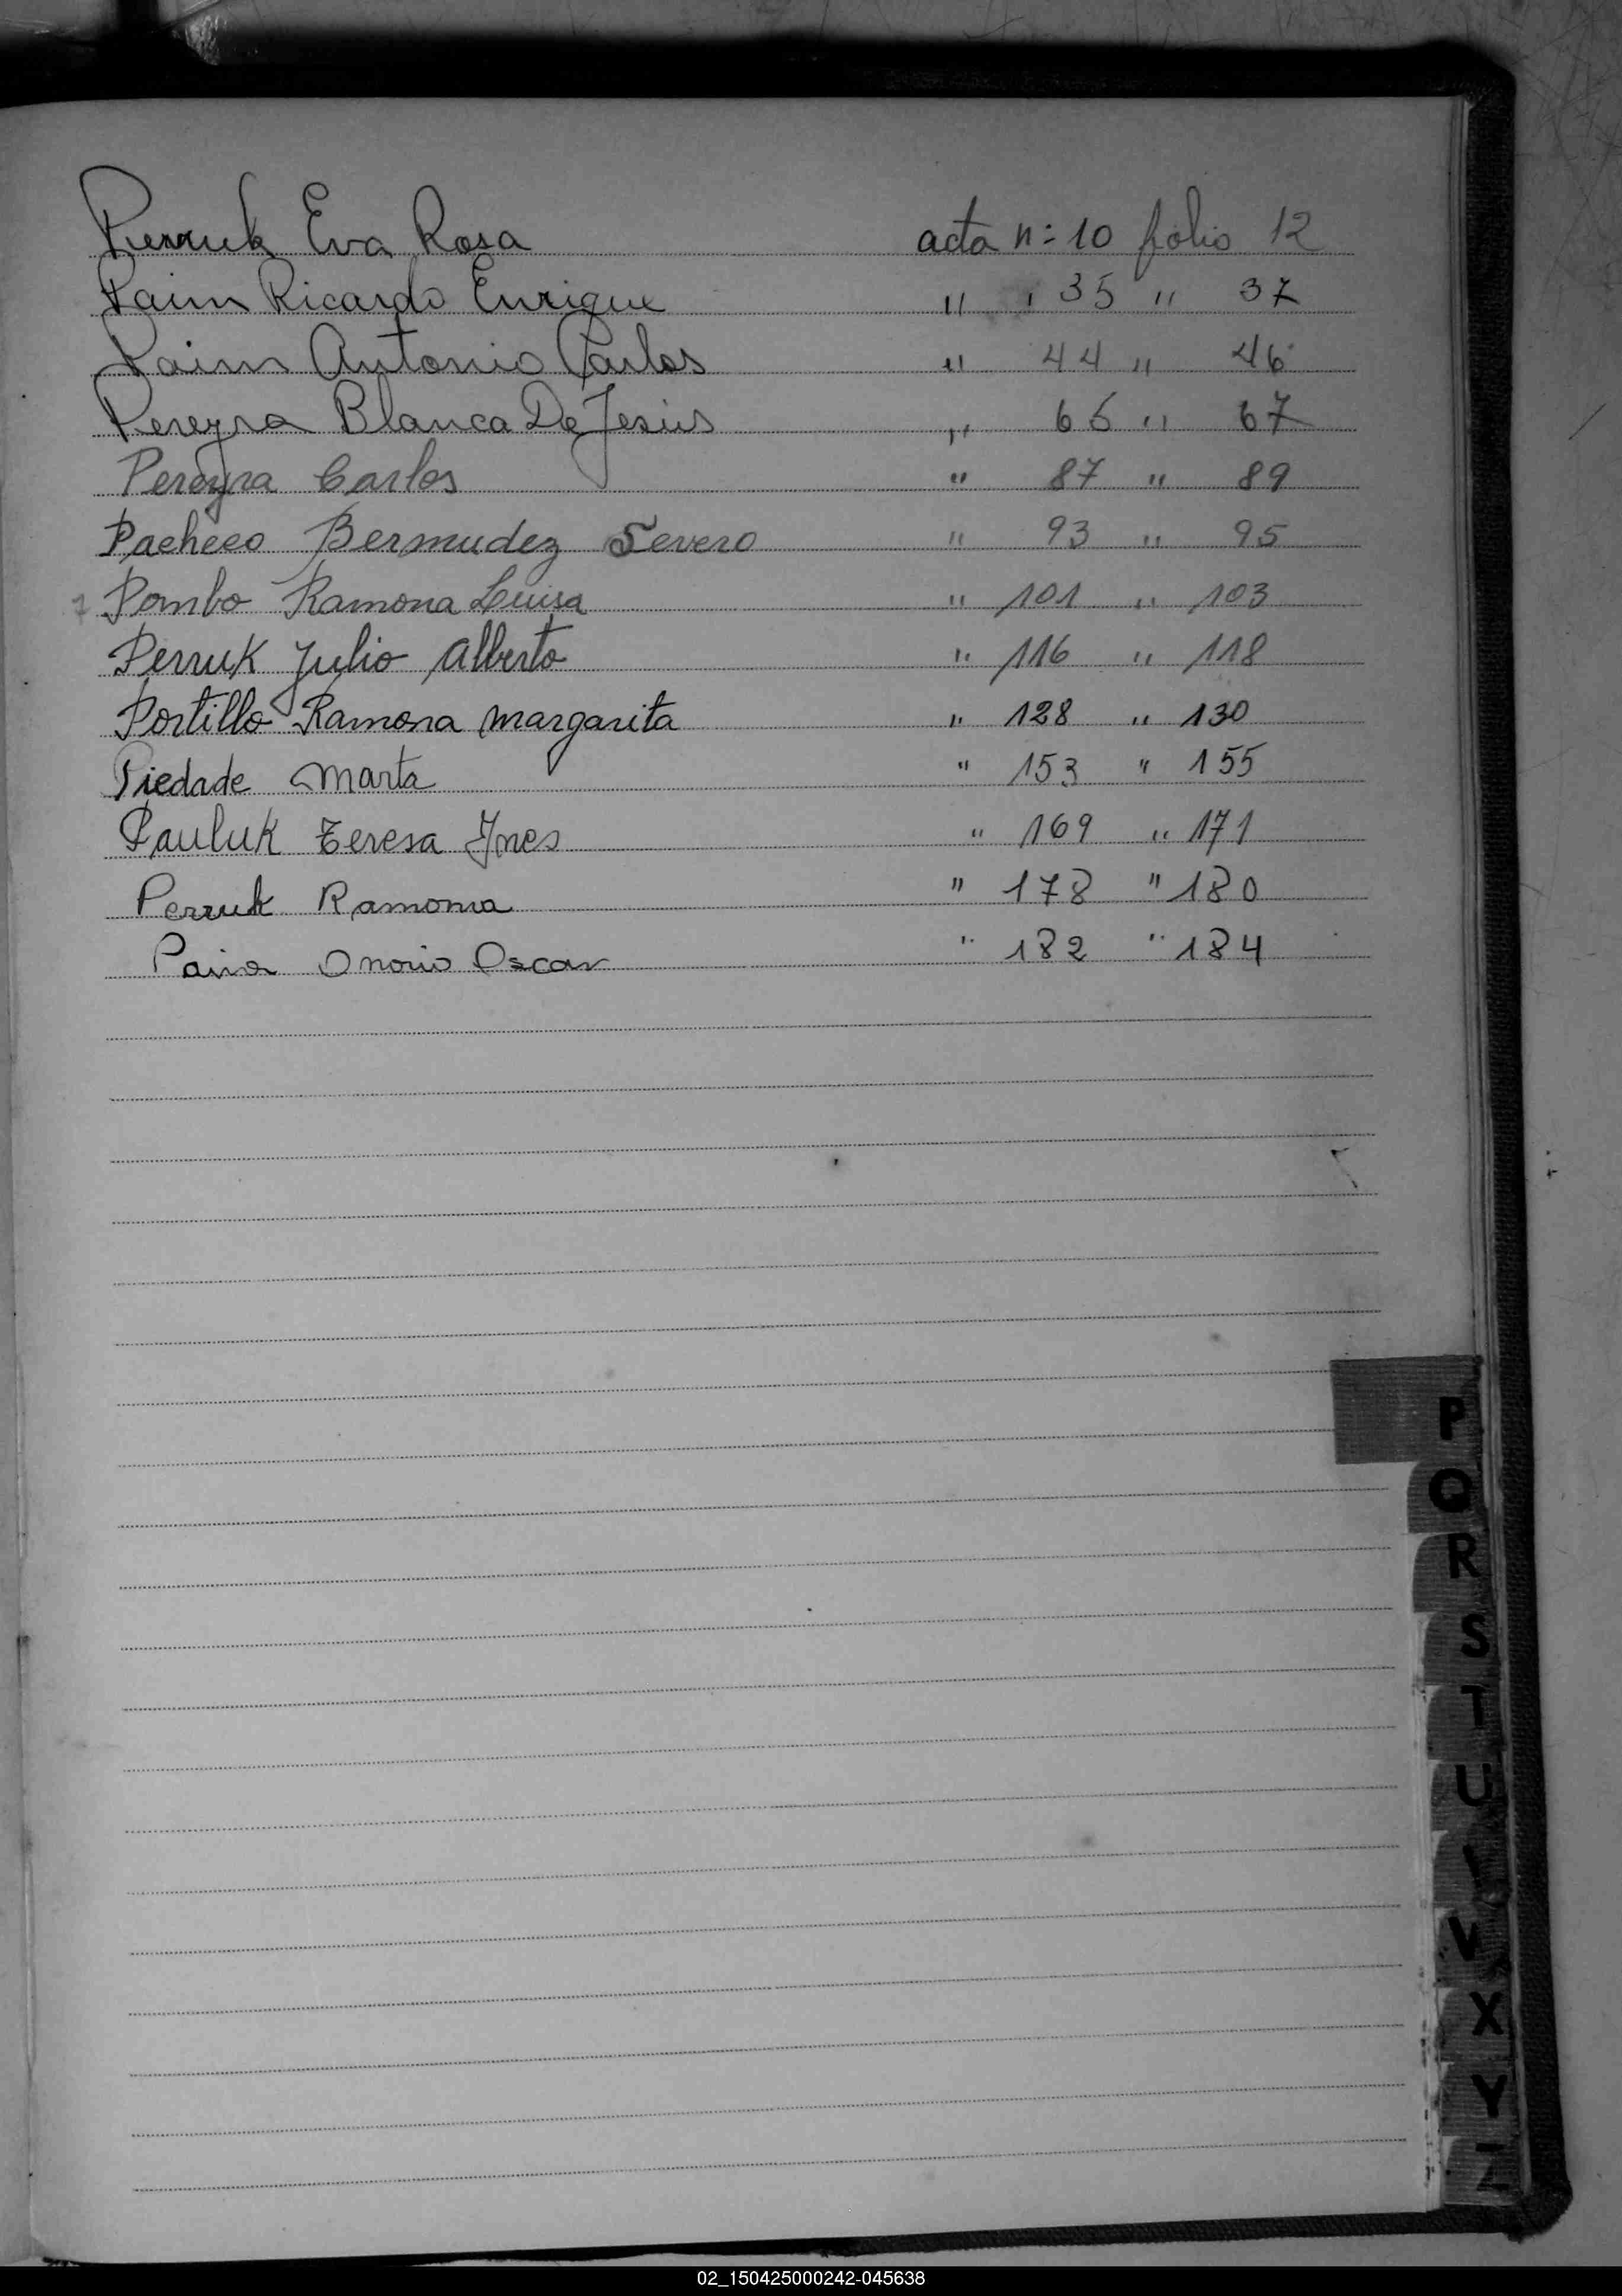 Perruk Eva Rosa acta n: 10 folio 12
Paim Ricardo Enrique " " 35 " 37
Paim Antonio Carlos " 44 " 46
Pereyra Blanca De Jesús " 65 " 67
Pereyra Carlos " 87 " 89
Pacheco Bermudez Severo " 93 " 95
Pombo Ramona Luisa " 101 " 103
Perruk Julio Alberto " 116 " 118
Portillo Ramona Margarita " 128 " 130
Piedade Marta " 153 " 155
Pauluk Teresa Ynes " 169 " 171
Perruk Ramona " 178 " 180
Onorio Oscar " 182 " 184
P
Q
R
S
T
U
V
X
Y
Z
02_150425000242-045638